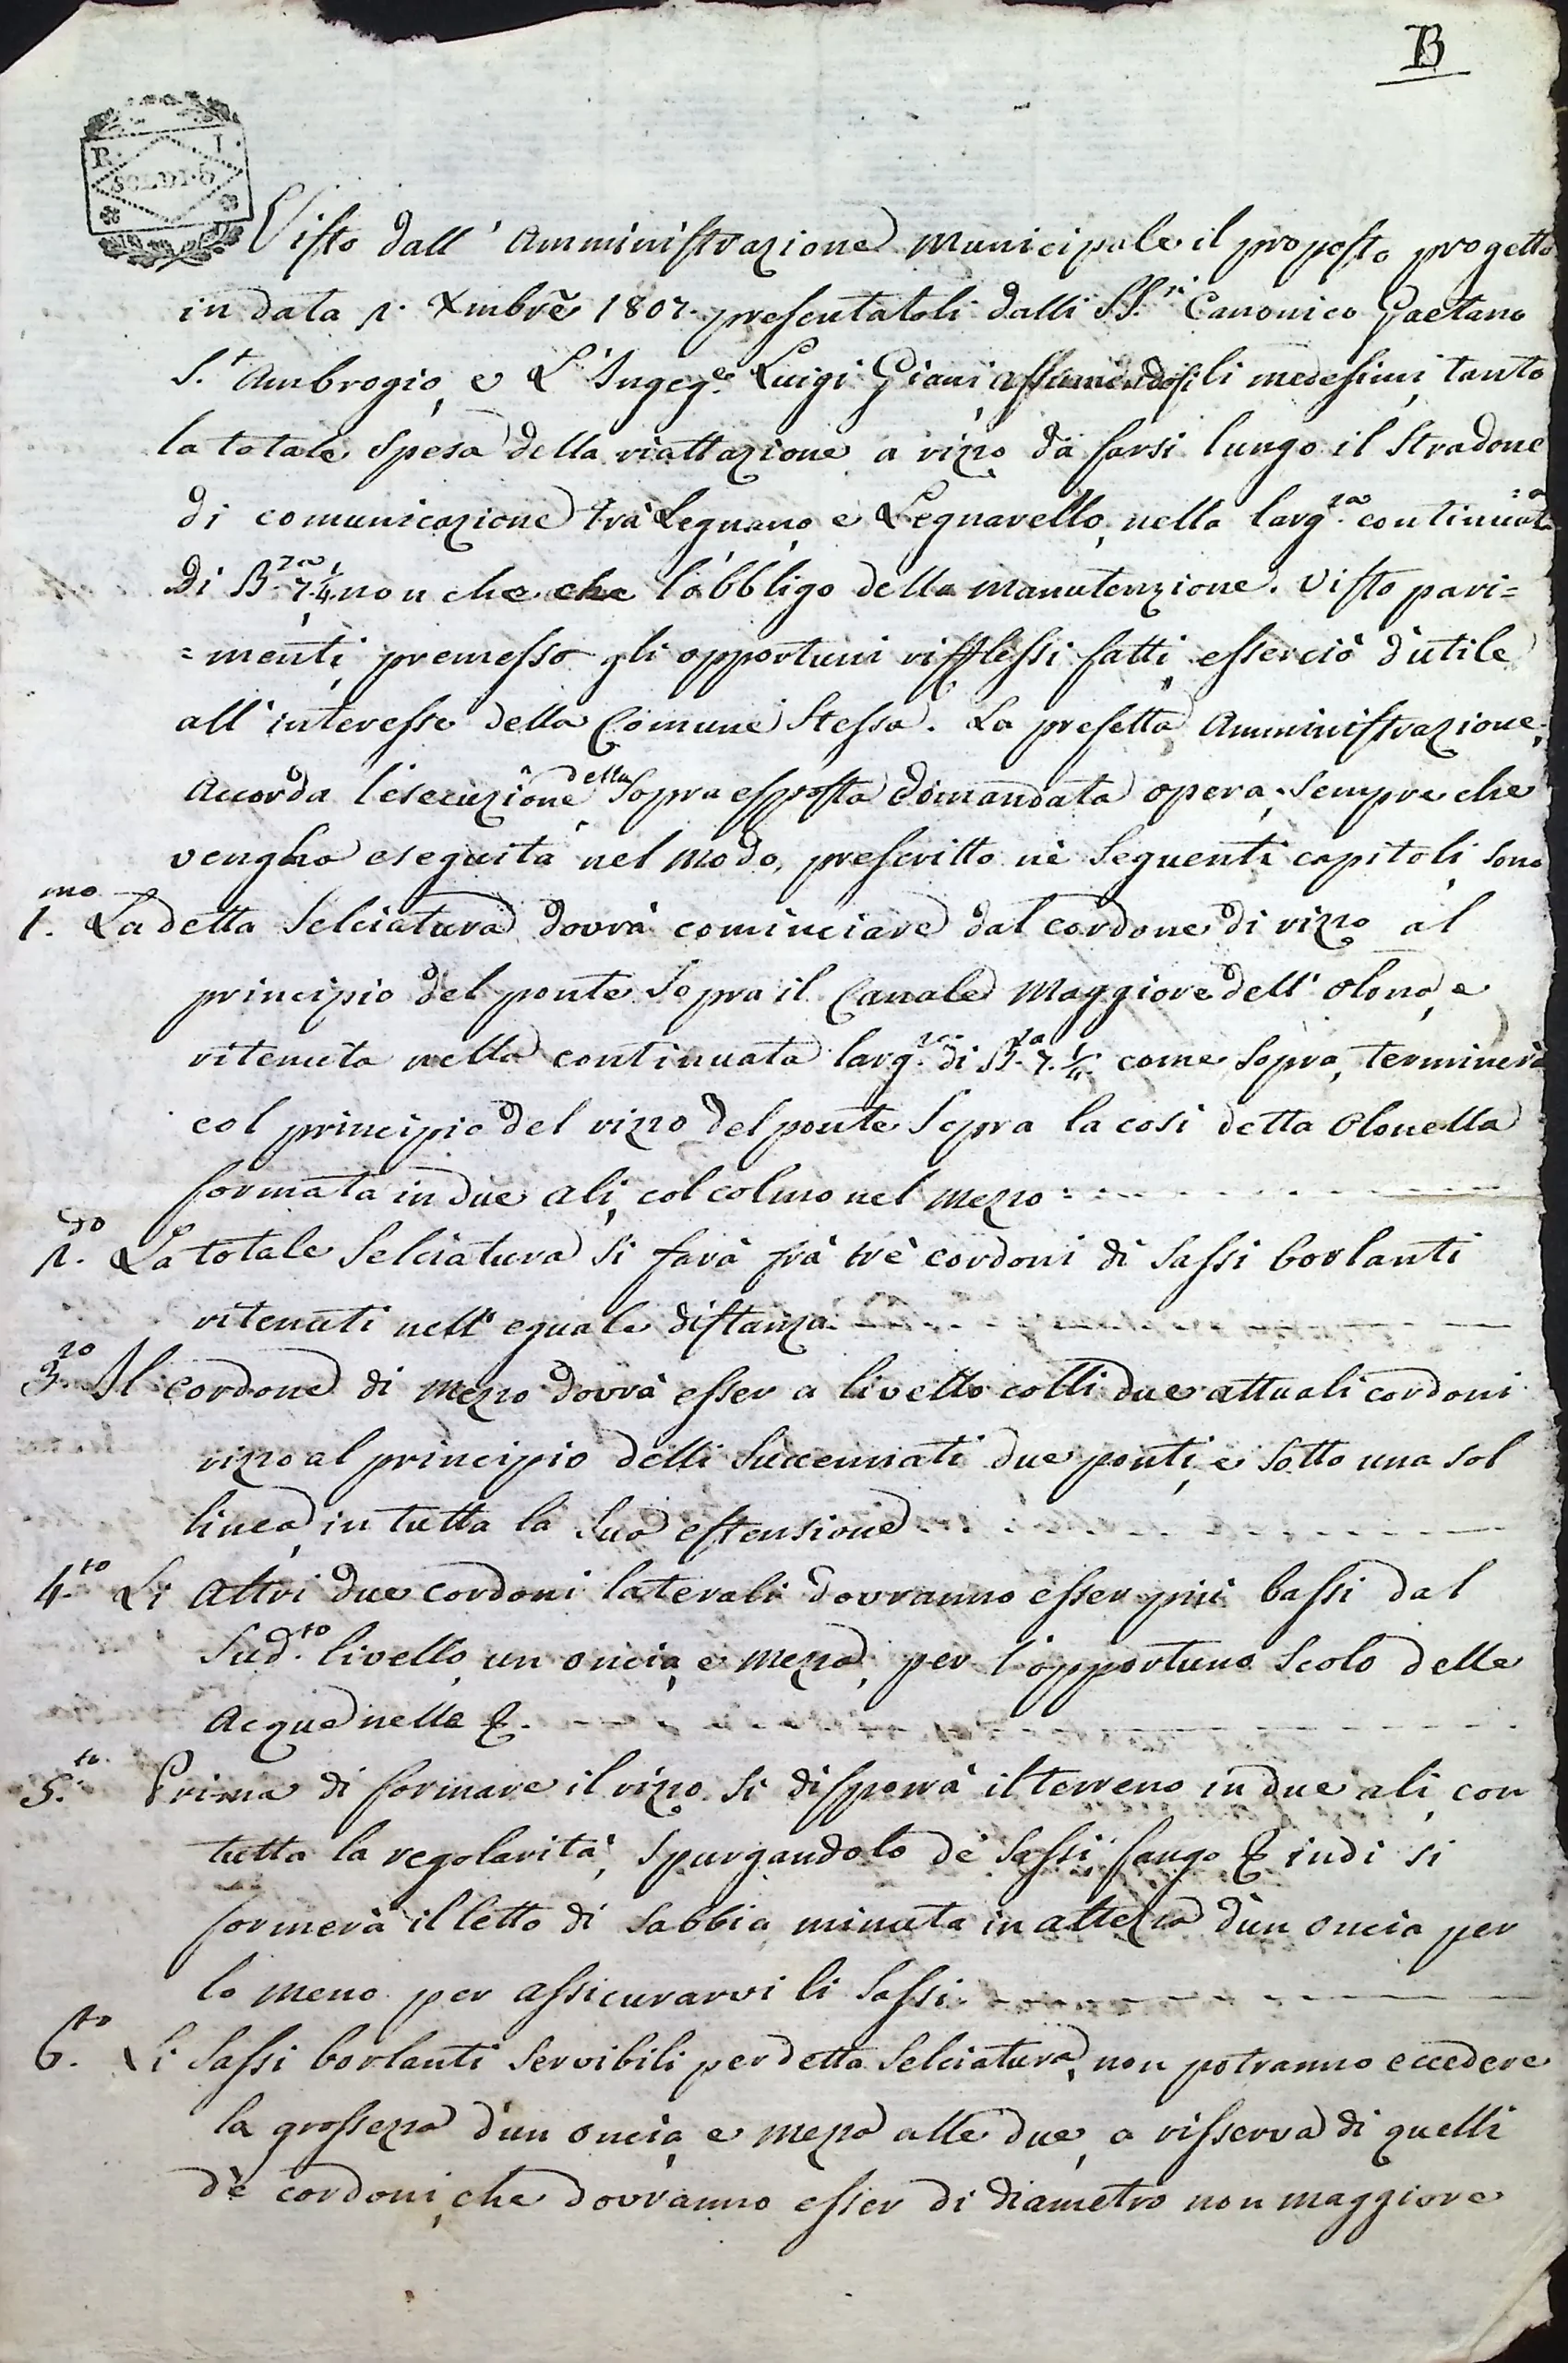 B
R. I.
SOLDI·6
Visto dall' Amministrazione Municipale il proposto progetto
in data 2. Xmbrẽ 1807. presentatoli dalli SS.ri Canonico Gaetano
S.t Ambrogio, e L'Ingeg.e Luigi Giani, assumendosi li medessimi, tanto
la totale spesa della riattazione a rizzo da farsi lungo il Stradone
di comunicazione trà Legnano, e Legnarello, nella larg.za continuat.a
Di B.za 7.¼ non che che l'obbligo della manutenzione. Visto pari=
=menti, premesso gli opportuni rifflessi fatti, esserciò d'utile
all'interesse della Comune Stessa. La prefetta Amministrazione,
Accorda l'esecuzione della sopra espposta domandata opera, sempre che
vengha eseguita nel modo, prescritto nè seguenti capitoli, sono
1.mo La detta Selciatura dovrà cominciare dal cordone di rizzo al
principio del ponte sopra il Canale Maggiore dell' Olona, e
ritenuta nella continuata larg.za di B.za 7.¼ come sopra, terminerà
col principio del rizzo del ponte sopra la così detta Olonella
formata in due ali, col colmo nel mezzo
2.do La totale Selciatura si farà frà trè cordoni di sassi borlanti
ritenuti nell' eguale distanza
3.zo Il cordone di mezzo dovrà esser a livello colli due attuali cordoni
rizzo al principio delli succennati due ponti, e sotto una sol
linea, in tutta la sua estensione
4.to Li Altri due cordoni laterali dovranno esser più bassi dal
Sud.to livello, un oncia, e mezza, per l'opportuno scolo delle
Acque nelle &.
5.to Prima di formare il rizzo si disporrà il terreno in due ali, con
tutta la regolarità, spurgandolo dè sassi fango & indi si
formerà il letto di sabbia minuta in altezza d'un oncia per
lo meno per assicurarvi li sassi
6.to Li sassi borlanti servibili per detta Selciatura, non potranno eccedere
la grossezza d'un oncia, e mezza alle due, a risserva di quelli
dè cordoni, che dovranno esser di diametro non maggiore